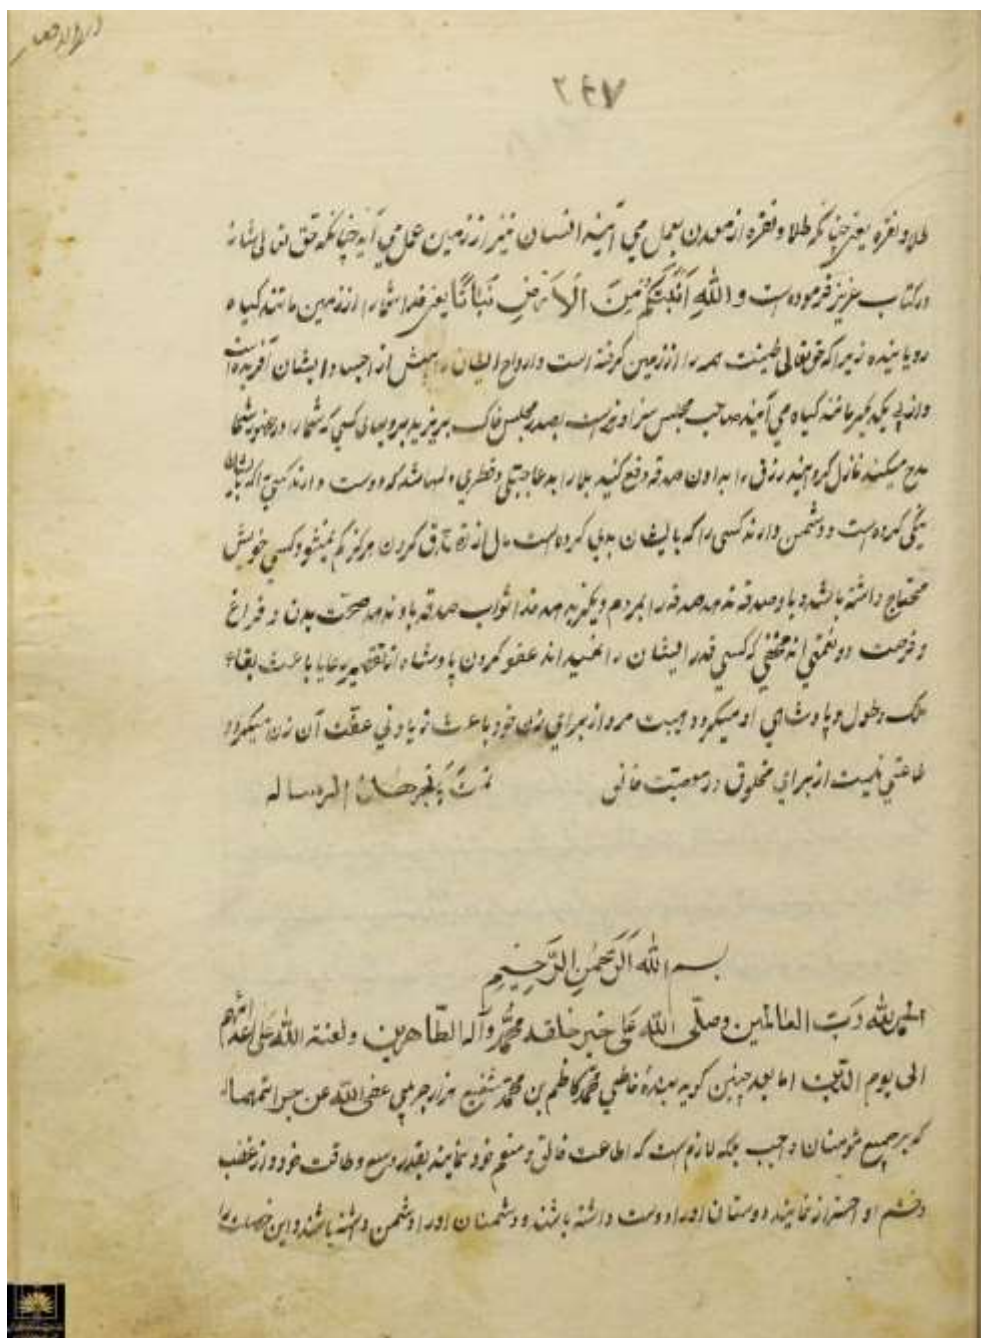 ۲۴۷
طلا و نقره یعنی چنانکه طلا و نقره از معدن بعمل می آیند انسان نیز از زمین عمل می آید چنانکه حق تعالی شانه
در کتاب عزیز فرموده است و الله اَنْبَتَکُمْ مِنَ الْاَرْضِ نَبَاتًا یعنی خدا شما را از زمین مانند گیاه
رویانیده زیرا که حق تعالی طینت همه را از زمین گرفته است و ارواح ایشان را پیش از اجساد ایشان آفریده است
و از پی یکدیگر مانند گیاه می آیند صاحب مجلس سزاوار است بصدر مجلس خاک بریزید بر روهای کسی که شما را در حضور شما
مدح میکنند نازل گردانید رزق را به دادن صدقه دفع کنید بلا را بدعا جبلی و فطری دلها شد که دوست دارند کسی را که بایشان
نیکی کرده است و دشمن دارند کسی را که بایشان بدی کرده است مال از تصدق کردن هرگز کم نمیشود کسی خویش
محتاج داشته باشد و باو صدقه ندهد صدقه را بمردم دیگر بدهد خدا ثواب صدقه باو ندهد صحت بدن و فراغ
و فرصت دو نعمتی اند مخفی که کسی قدر ایشان را نمیداند عفو کردن پادشاه از تقصیر رعایا باعث بقاء
ملک و طول پادشاهی او میگردد هیبت مرد از برای زن خود باعث زیادتی عفت آن زن میگردد
طاعتی نیست از برای مخلوق در معصیت خالق تمت الرساله
بسم الله الرَّحْمٰنِ الرَّحِیْمِ
الحمد لله رَبّ العالمین و صلّی الله عَلی خیر خلقه محمّد و آله الطّاهرین و لعنة الله علی اعدائهم
الی یوم الدّین اما بعد چنین گوید بندهٔ خاطی محمّد کاظم بن محمّد شفیع هزارجریبی عفی الله عن جرائمهما
که بر جمیع مؤمنان واجب بلکه لازم است که اطاعت خالق و منعم خود نمایند بقدر وسع و طاقت خود و از غضب
و خشم او احتراز نمایند دوستان او را دوست داشته باشند و دشمنان او را دشمن داشته باشند و این